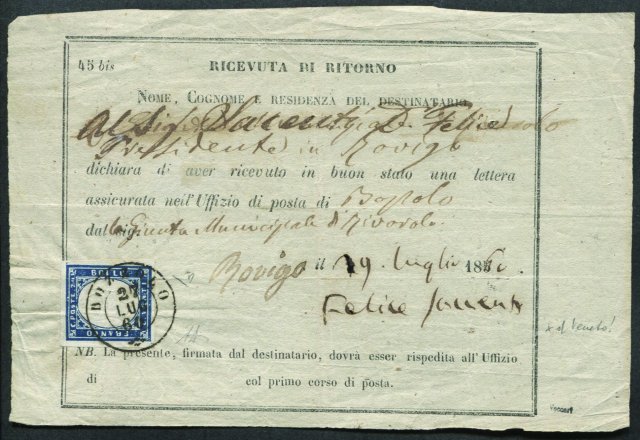 45 bis
RICEVUTA DI RITORNO
NOME, COGNOME E RESIDENZA DEL DESTINATARIO
Al Sig. D. Felice
Presidente in Rovigo
dichiara di aver ricevuto in buon stato una lettera
assicurata nell'Uffizio di posta di Bozzolo
dal sig. la Giunta Municipale di Rivarolo
Rovigo il 29 luglio 1860.
Felice
x il Veneto!
BOLLO
POSTE
FRANCO
BOZZOLO
27
LU
60
NB. La presente, firmata dal destinatario, dovrà esser rispedita all'Uffizio
di col primo corso di posta.